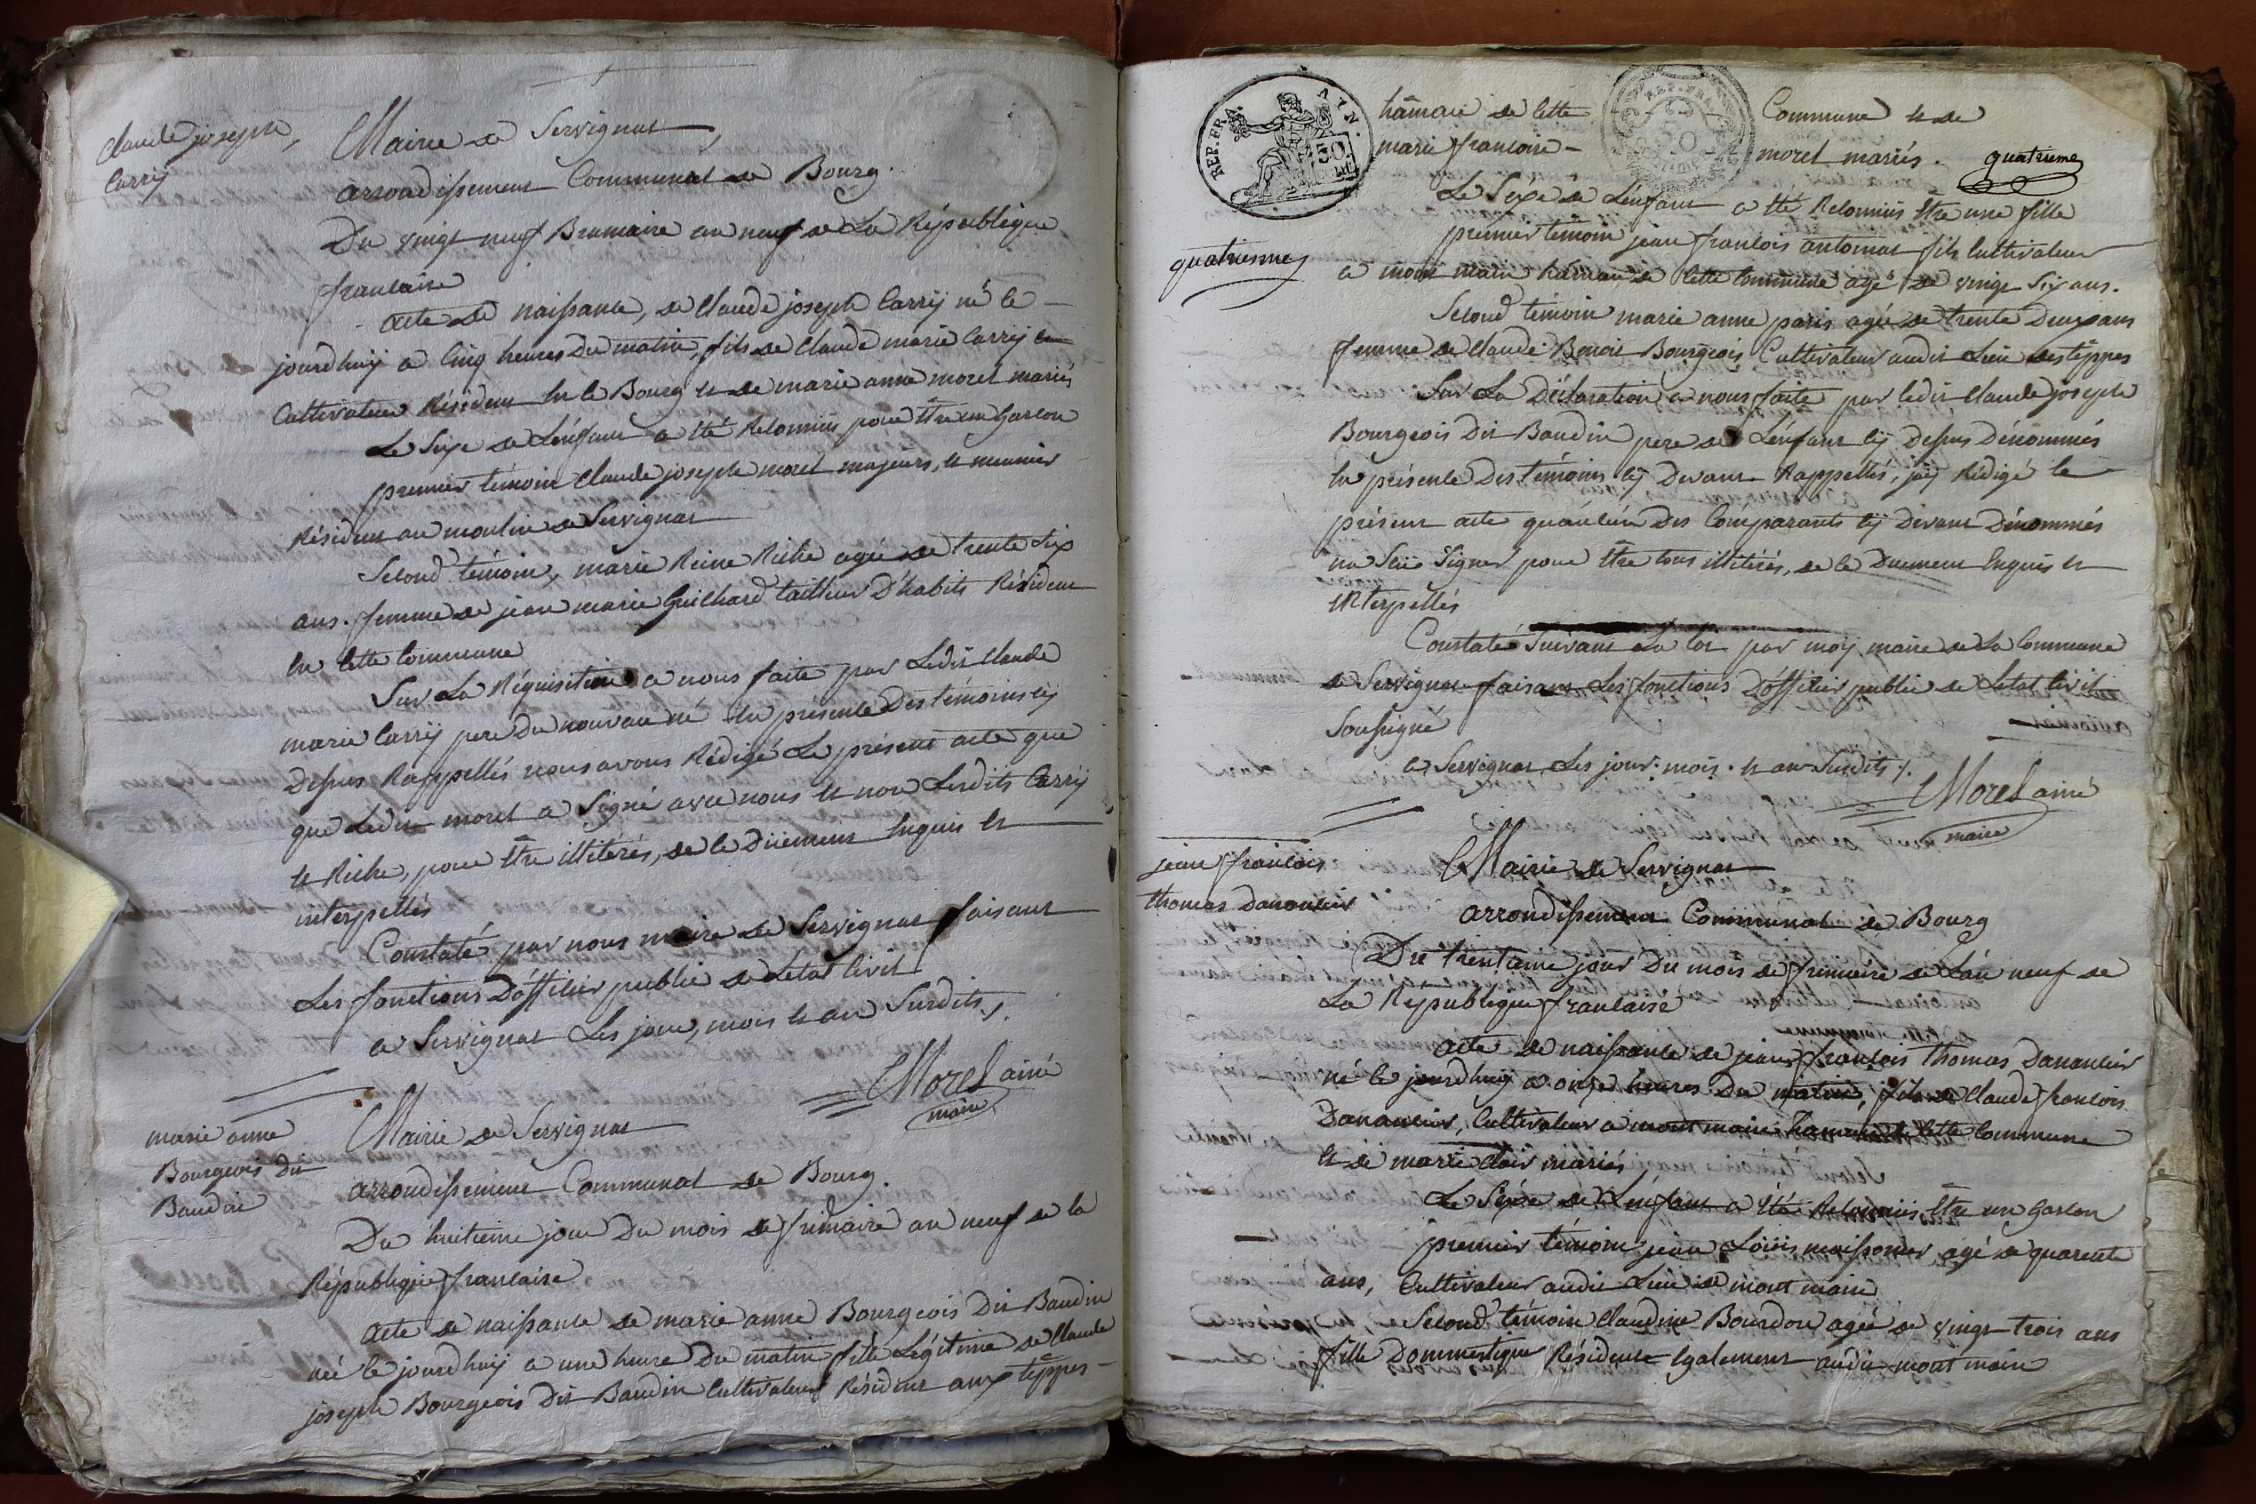 Claude joseph,
Carrÿ
Mairie de Servignat,
arrondissement Communal de Bourg.
Du vingt neuf Brumaire an neuf de La République
francaise
acte de naissance, de Claude joseph Carrÿ né le
jourdhuÿ a Cinq heures Du matin, fils de Claude marie Carrÿ
Cultivateur Résident en le Bourg et de marie anne morel mariés
Le Sexe de L'énfant a été Reconnüs pour être un Garcon
premier témoin Claude joseph morel majeurs, et meunier
Résident au moulin de Servignat
Second témoin, marie Reine Riche agée de trente Six
ans. femme de jean marie Guichard tailleur D'habits Résident
en Cette Commune
Sur La Réquisition a nous faite par Ledit Claude
marie Carrÿ pere Du nouveau né en présence Des témoins cÿ
Dessus Rappellés nous avons Rédigé Le présent acte que
que Ledit morel a Signé avec nous et non Lesdits Carrÿ
et Riche, pour être illitérés, de ce Düement Enquis et
interpellés
Constaté par nous maire de Servignat faisant
Les fonctions D'officier public de L'etat Civil
a Servignat Les jour, mois et an Susdits ./.
Morel ainé
maire
marie anne
Bourgeois dit
Baudin
Mairie de Servignat
arrondissement Communal de Bourg.
Du huitieme jour Du mois de frimaire an neuf de la
République francaise
acte de naissance de marie anne Bourgeois Dit Baudin
née le jourdhuÿ a une heure Du matin fille Légitime de Claude
joseph Bourgeois Dit Baudin Cultivateur Résident aux têppes
REP. FRA.
AYN.
50
REP. FRA.
hâmeau de Cette Commune et de
marie francoise morel mariés.
quatrieme
quatriesme
Le Sexe de L'énfant a été Reconnüs être une fille
premier témoin jean francois antoinat fils Cultivateur
a mont main hâmeau de Cette Commune agé de vingt Six ans.
Second témoin marie anne paris agée de trente Deux ans
femme de Claude Benoit Bourgeois Cultivateur audit Lieu des têppes
Sur La Déclaration a nous faite par ledit Claude joseph
Bourgeois Dit Baudin pere de L'énfant cÿ Dessus Dénommés
en présence Des témoins cÿ Devant Rappellés, jaÿ Rédigé le
présent acte Des Comparants cÿ Devant Dénommés
na Seüs Signer pour être tous illitérés, de ce Duement Enquis et
interpellés
Constaté Suivant La loi par moÿ maire de La Commune
de Servignat faisant Les fonctions D'officier public de L'etat Civil
Soussigné
a Servignat Les jour. mois. et an Susdits ./.
Morel ainé
maire
jean francois
thomas Dananciér
Mairie de Servignat
arrondissement Communal de Bourg
Du trentieme jour Du mois de frimaire de L'an neuf de
La République francaise
acte de naissance de jean francois thomas Dananciér
né le jourdhuÿ a onze heures Du matin, fils de Claude francois
Dananciér, Cultivateur a mont main hameau de Cette Commune
et de marie Clair mariés
Le Sexe de L'énfant a été Reconnüs être un Garcon
premier témoin jean Loüis moissonier agé de quarente
ans, Cultivateur audit Lieu de mont main
Second témoin Claudine Bourdon agée de vingt trois ans
fille Dommestique Résidente Egalement audit mont main